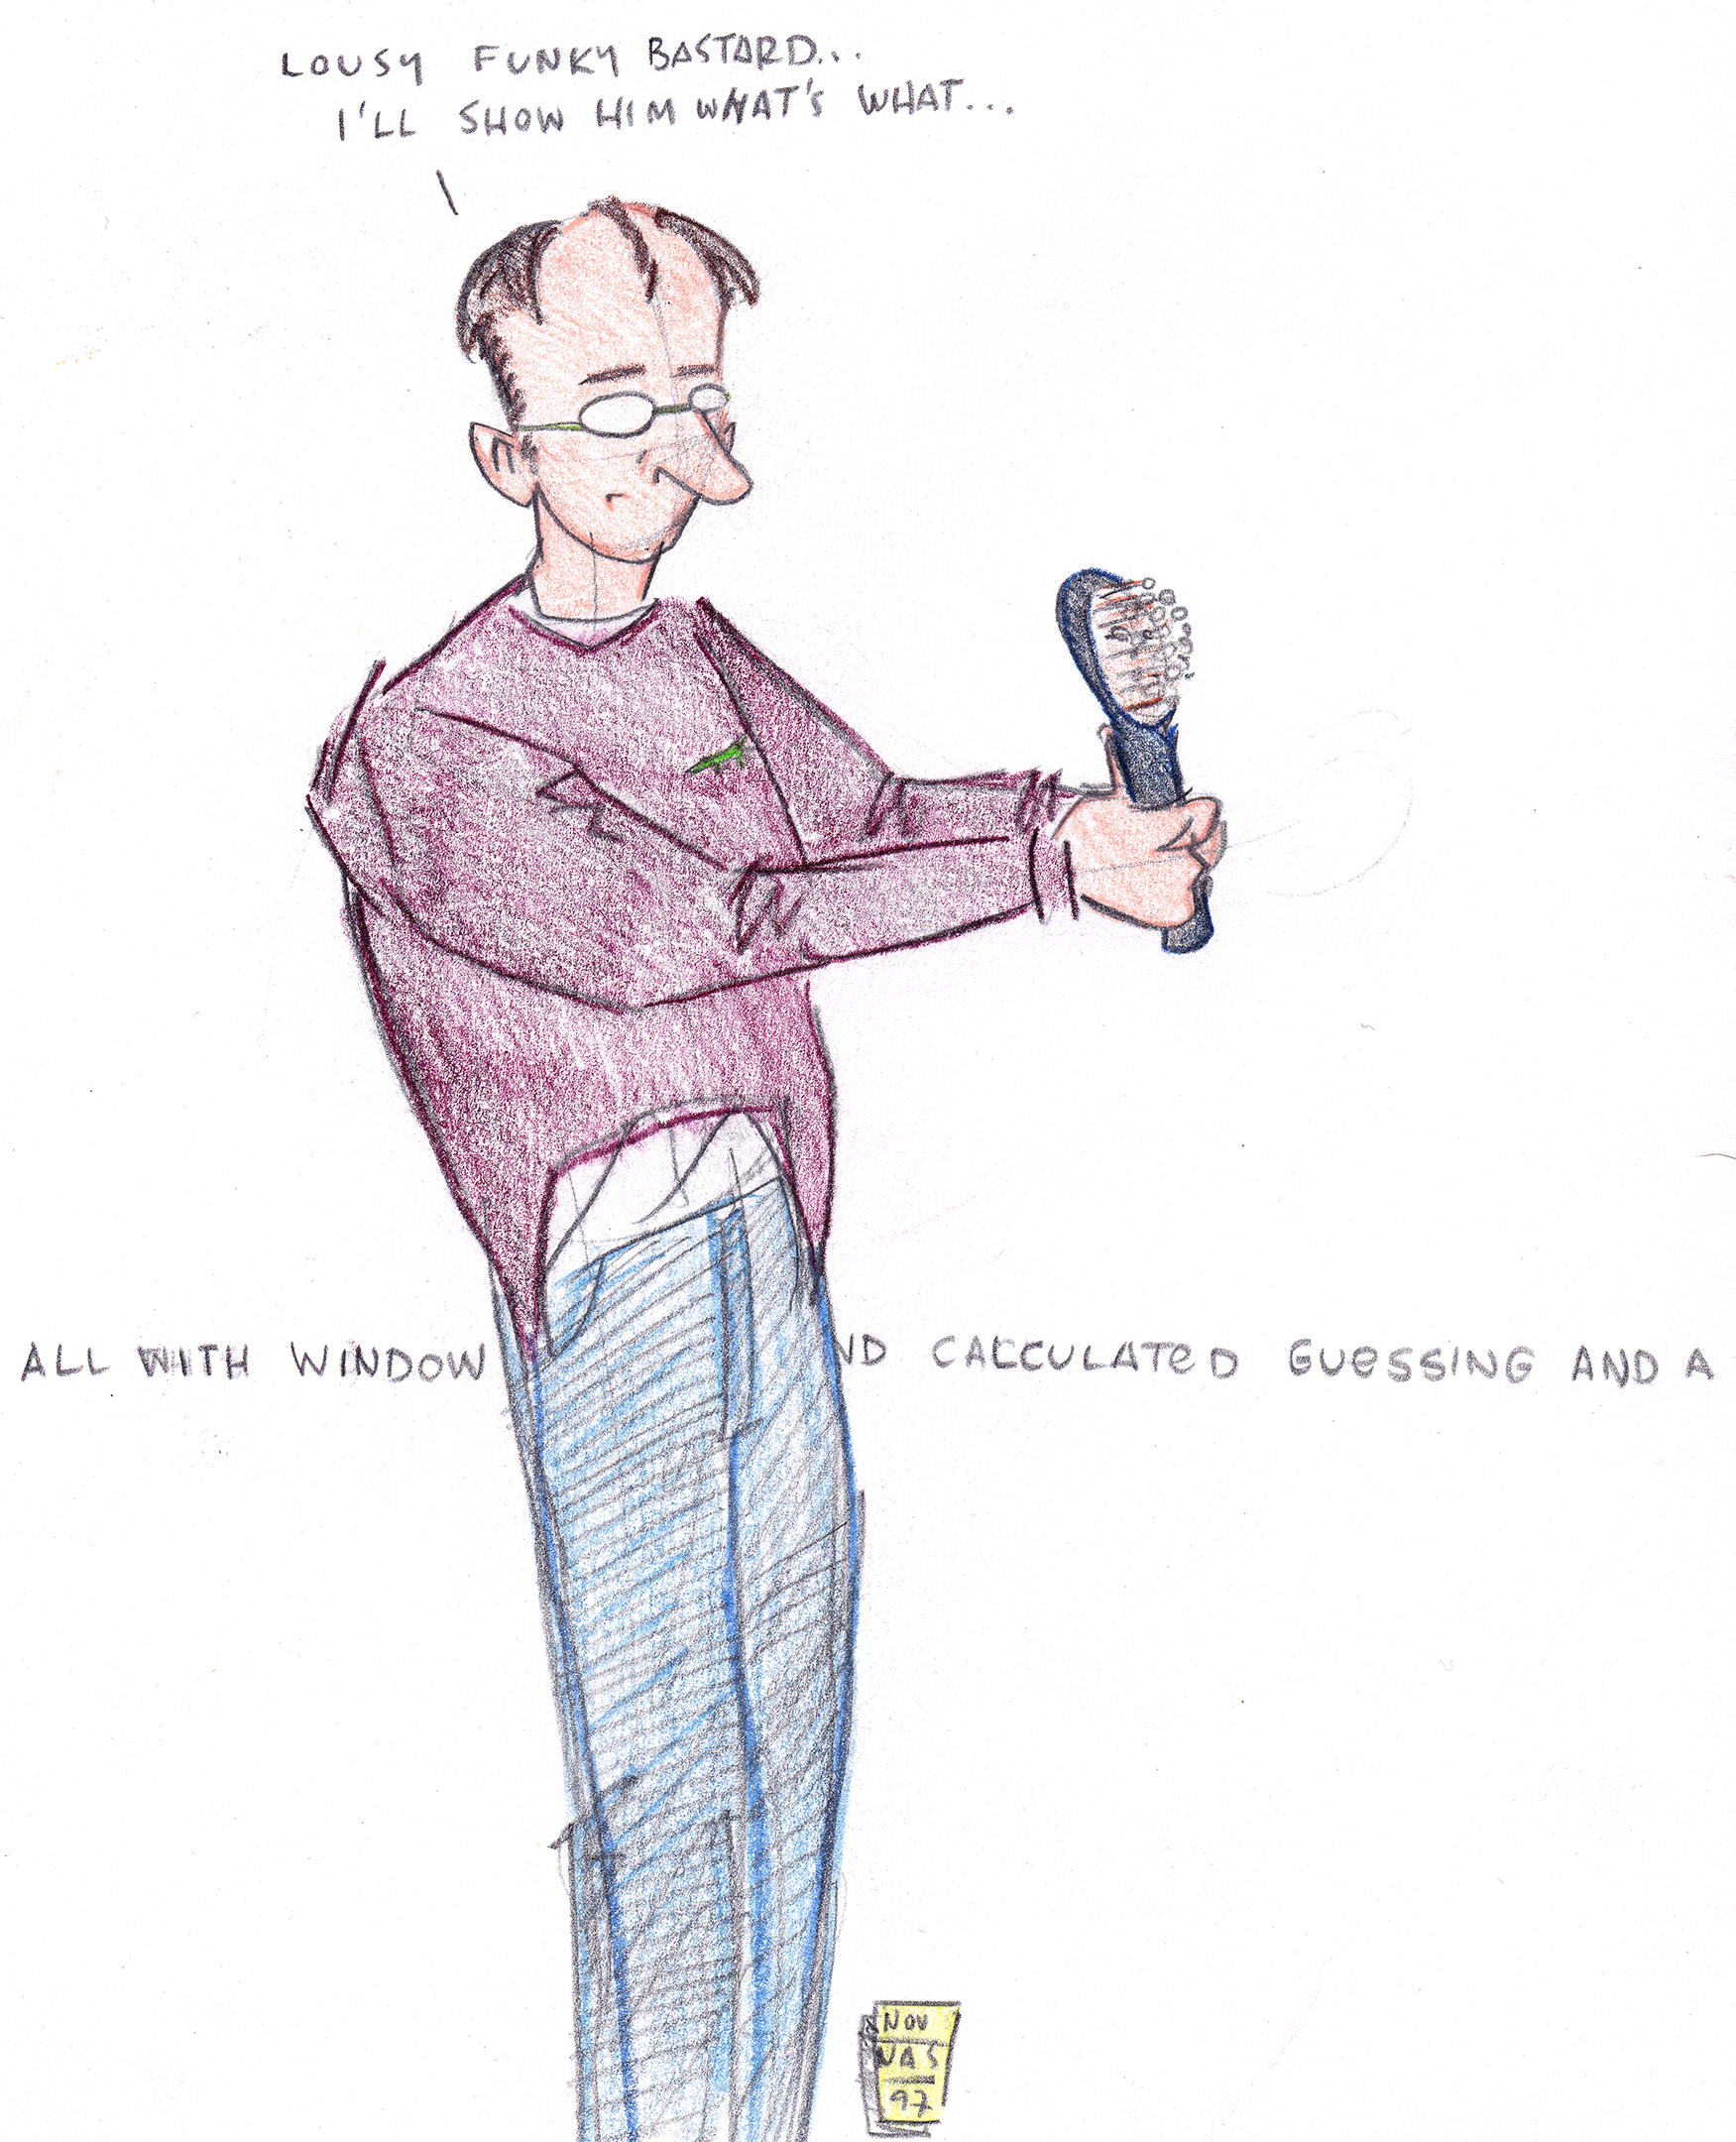 LOUSY FUNKY BASTARD...
I'LL SHOW HIM WHAT'S WHAT...
ALL WITH WINDOW ND CALCULATED GUESSING AND A
NOV
NAS
97